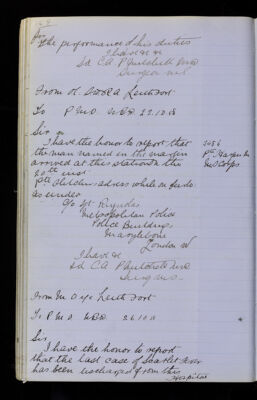 for
the performance of his duties
I have &c
Sd C.A. P Mitchell MD
Surgeon
From M.O. R A Leith Fort
To P M O N B D 22.10.
Sir
I have the honor to report that
the man named in the margin
arrived at this station on the
20th inst
Pte address while on furlo
as under
c/o Sgt Rynolds
Metropolitan Police
Police Buildings
Marylebone
London W
I have &c
Sd C A P Mitchell MD
Surg
From M O i/c Leith Fort
To P M O N B D 26.10.
Sir,
I have the honor to report
that the last case of Scarlet Fever
has been discharged from this
Hospital